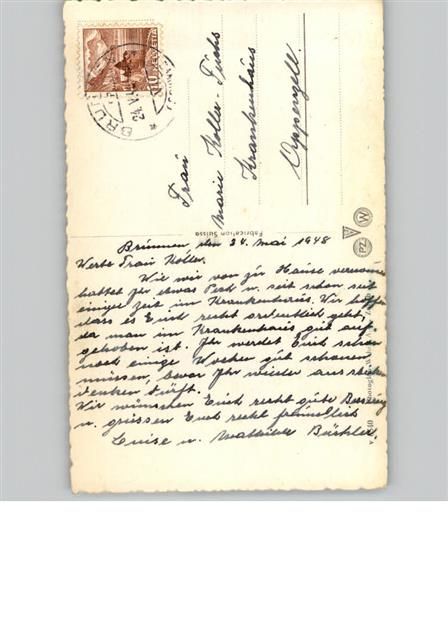 BRU
24.V
HELVETIA
10
Frau
Marie Koller-Fuchs
Krankenhaus
Appenzell.
Fabrication Suisse
PZ
W
Brunnen, den 24. Mai 1948
Werte Frau Koller.
Wie wir von zu Hause vernommen
hattet Ihr etwas Pech u. seit schon seit
einiger Zeit im Krankenhaus. Wir hoffen
dass es Euch recht ordentlich geht,
da man im Krankenhaus gut auf-
gehoben ist. Ihr werdet Euch schon
noch einige Wochen gut schonen
müssen, bevor Ihr wieder ans
denken dürft.
Wir wünschen Euch recht gute Besserung
u. grüssen Euch recht freundlich
Luise u. Mathilde